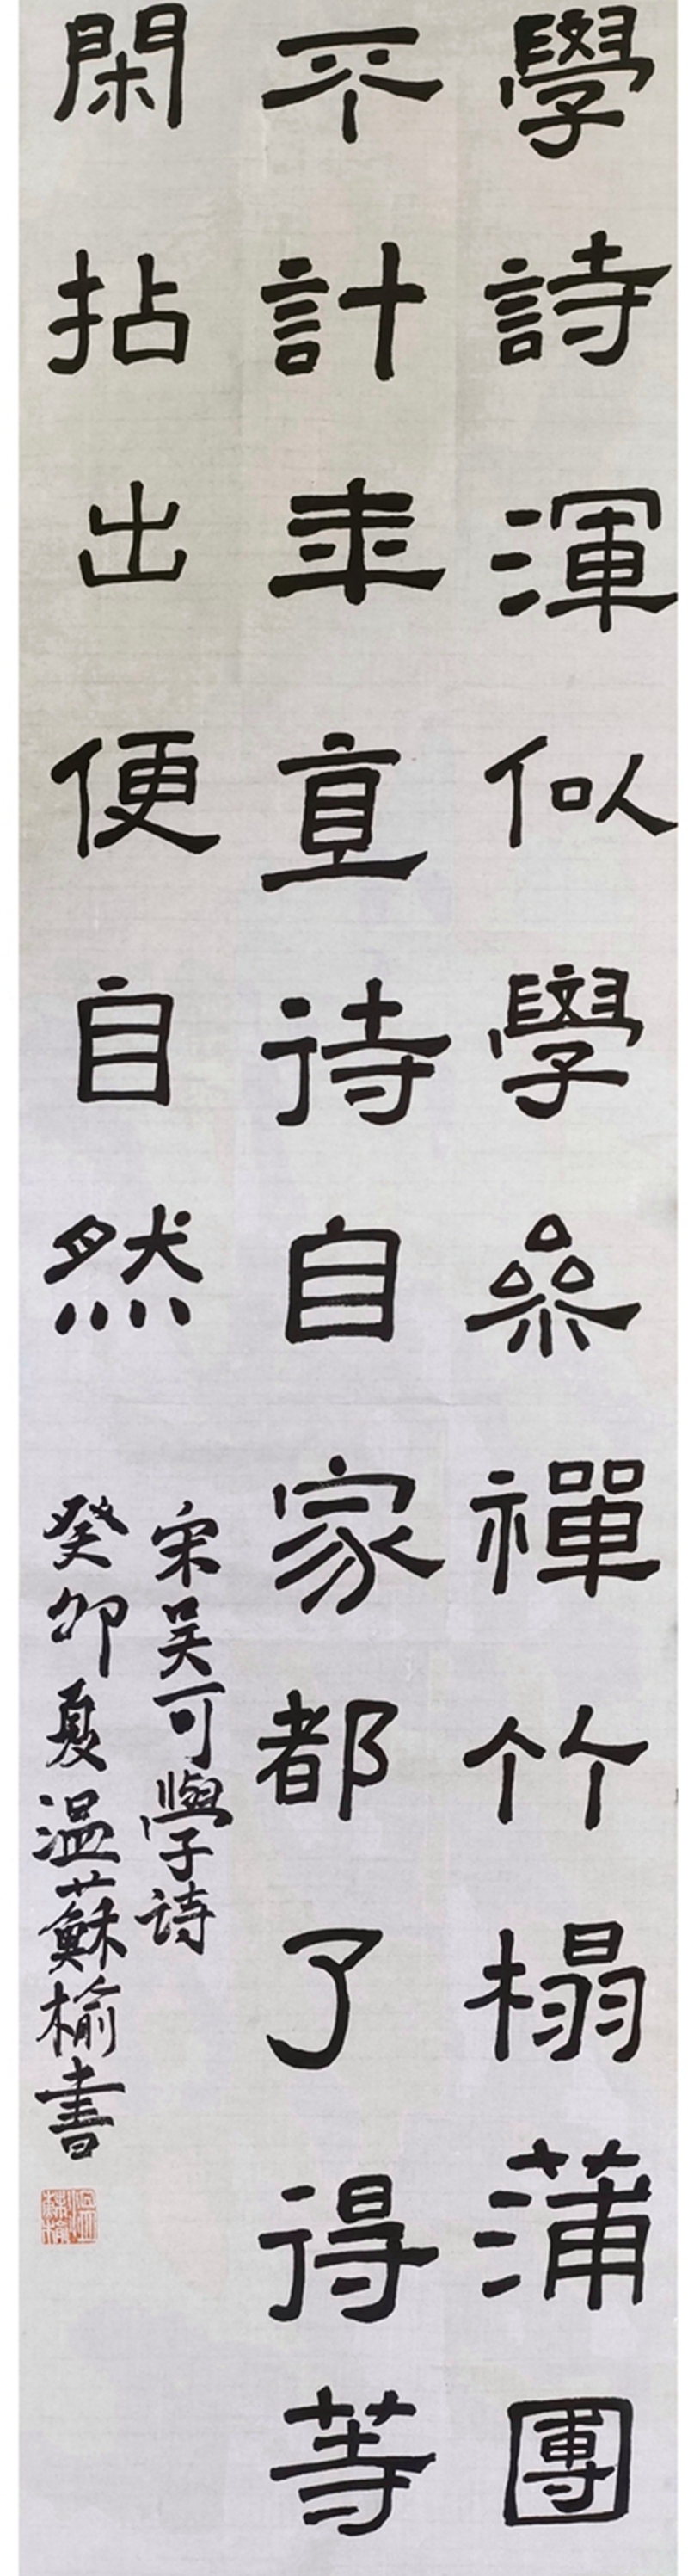 學詩渾似學參禪竹榻蒲團
不計年直待自家都了得等
閑拈出便自然
宋吴可學詩
癸卯夏温蘇榆書